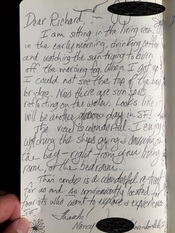 Dear Richard,
I am sitting in the living room
in the early morning, drinking coffee
and watching the sun trying to burn
off the morning fog. When I got up
I could not see the top of the bay
bridge. Now there are sun spots
reflecting on the water. Looks like
will be another day in SF!
The view is wonderful. I enjoy
watching the ships going &
the bay - right from your living
room or the bedroom.
This condo is a wonderful
for us and so conveniently located for
tourists who want to explore & experience
SF.
Thanks!
Nancy